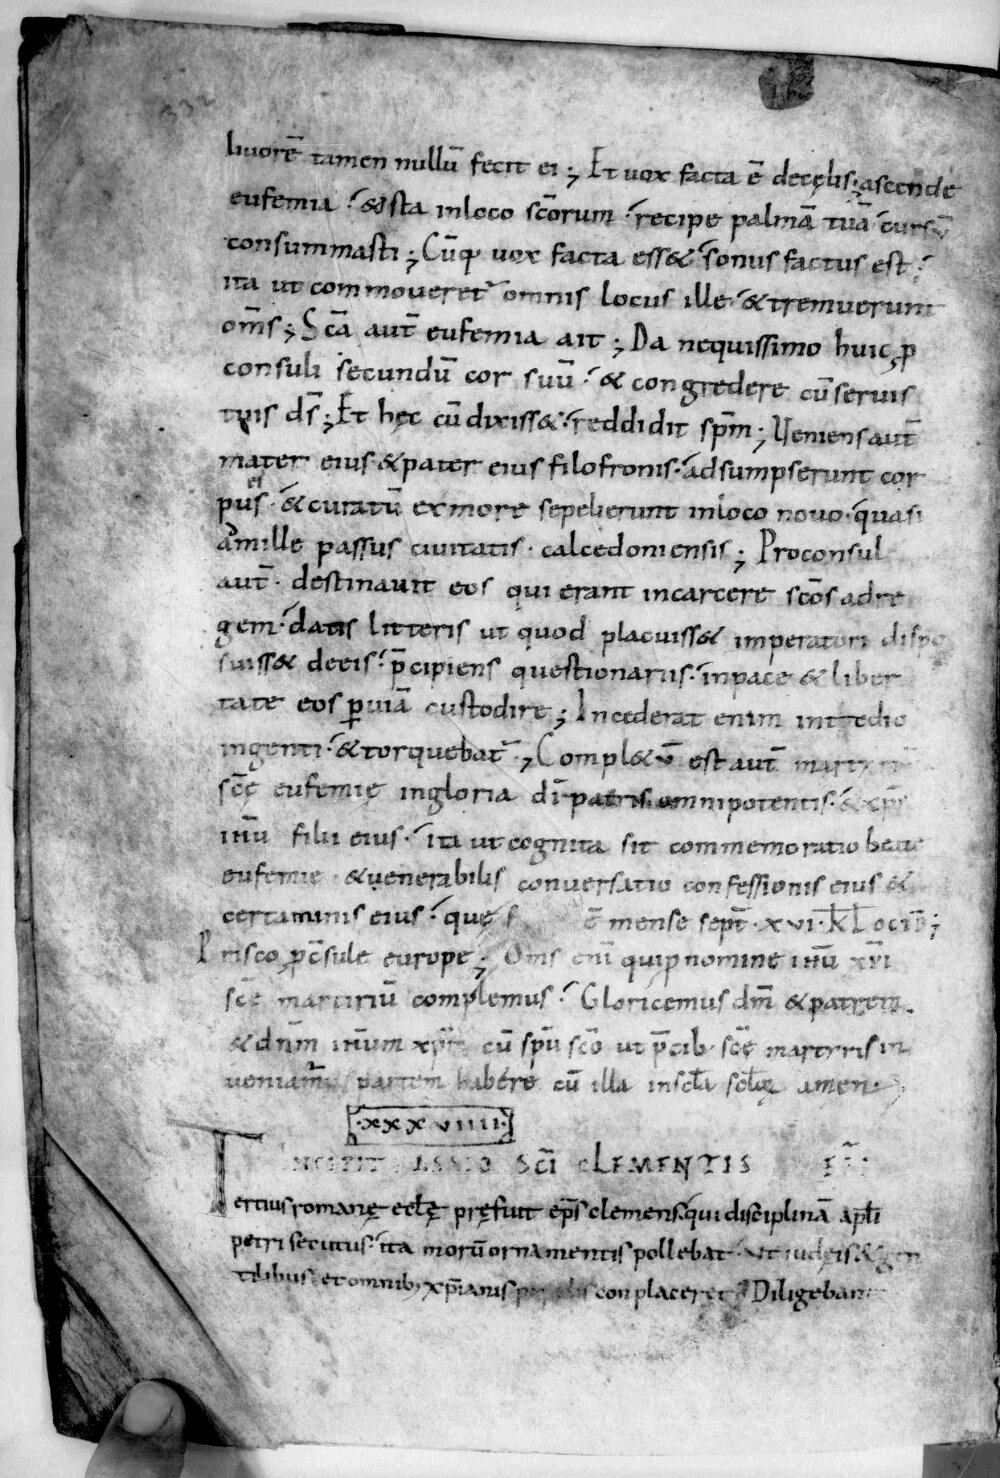 liuorē tamen nullū fecit ei ; Et uox facta ē decęlis · ascende
eufemia · & sta inloco scōrum · recipe palmā tuā cursū
consummasti ; Cūq; uox facta ess& · sonus factus est ·
ita ut commoueret᷑ omnis locus ille · & tremuerunt
om̄s ; Scā aut̄ eufemia ait ; Da nequissimo huic ꝓ
consuli secundū cor suū · & congredere cū seruis
tuis d̄s ; Et hęc cū dixiss& · reddidit sp̄m ; Ueniens aut̄
mater eius & pater eius filofronis · adsumpserunt cor
pus ei᷒ · & curatū exmore sepelierunt inloco nouo · quasi
a mille passus ciuitatis · calcedoniensis ; Proconsul
aut̄ · destinauit eos qui erant incarcere scōs adre
gem · datis litteris ut quod placuiss& imperatori dispo
suiss& deeis · p̄cipiens questionariis · inpace & liber
tate eos ꝑuiā custodire ; Incederat enim in tedio
ingenti · & torquebat᷑ ; Compl&ū est aut̄ martyriū
scę eufemię ingloria dī patris omnipotentis ·
ih̄u filii eius · ita ut cognita sit commemoratio beate
eufemie & uenerabilis conuersatio confessionis eius &
certaminis eius · quę ē mense sept̄ · xvi · kl̄ octb̄ ;
Prisco ꝓc̄sule europe ; Om̄s enī quiꝓ nomine ih̄u xp̄i
scę martiriū complemus · Gloricemus dm̄ & patrem
& dn̄m ih̄um xp̄m cū sp̄u scō ut p̄cib; scę martyris in
ueniamus partem habere cū illa inscl̄a scl̄oꝝ amen ·
· xxxviiii ·
INCIPIT PASSIO SC̄I CLEMENTIS
Tertius romanę eccl̄ę pręfuit ep̄s clemens · qui disciplinā apl̄i
petri secutus · ita morū ornamentis pollebat · ut iudęis & gen
tilibus · et omnib; xp̄ianis conplaceret Diligebant